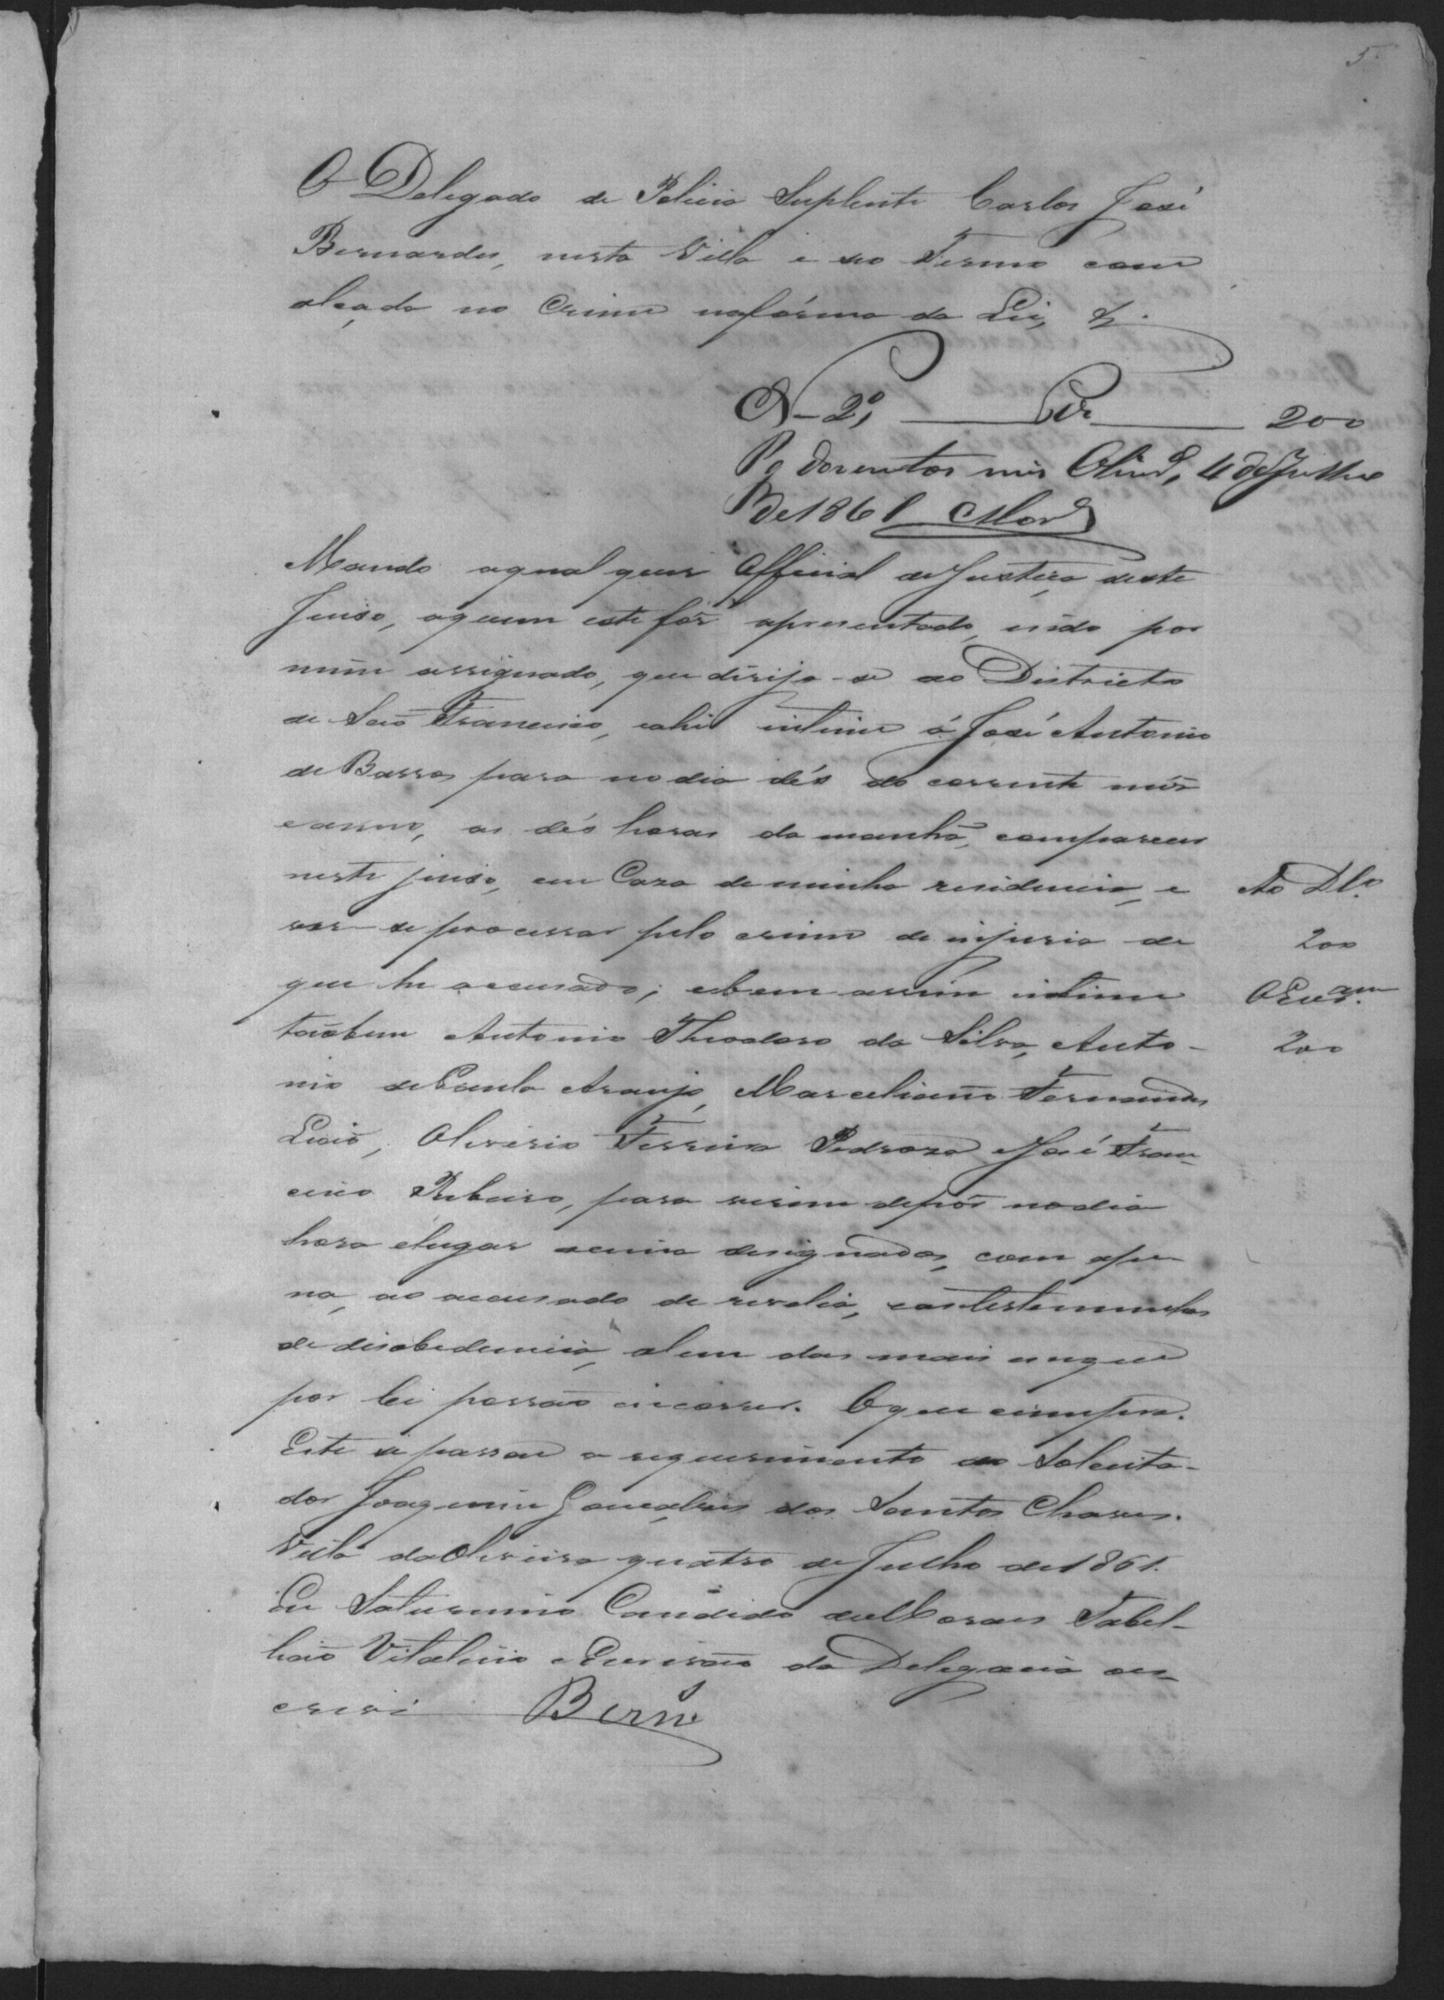 5
O Delegado de Policia Suplente Carlos José
Bernardes, nesta Villa e seo Termo com
alçada no Crime na fórma da Lei, &.
N 2º, 200
Pg duzentos reis Olivrª, 4 de Julho
de 1861 Mor.es
Mando aqual quer Official de Justiça deste
Juiso, aquem este fôr apresentado, indo por
mim assignado, que dirija-se ao Districto
de Saõ Francisco, eahi intime á José Antonio
de Barros para no dia dés do corrente mês
eanno, as dés horas da manhã, comparecer
neste juiso, em Caza de minha residencia, e
ver-se processar pelo crime de injuria de
que he accusado; ebem assim intime
taõbem Antonio Theodoro da Silva, Anto-
nio de Paula Araujo, Marceliano Fernandes
Liaõ, Oliverio Ferreira Pedrozo e José Fran-
cisco Ribeiro, para virem depôr no dia
hora elugar acima designados, com a pe-
na, ao accusado de revelia, eas testemunhas
de disobediencia, alem das mais em que
por lei possaõ incorrer. Oque cumpra.
Este se passou a requerimento do Solicita-
dor Joaquim Gonçalves dos Santos Chaves.
Villa da Oliveira quatro de Julho de 1861.
Eu Saturnino Candido de Moraes Tabel-
liaõ Vitalicio e Escrivaõ da Delegacia es-
crevi Bern.es
Ao Dl.º
200
OEscr.am
200